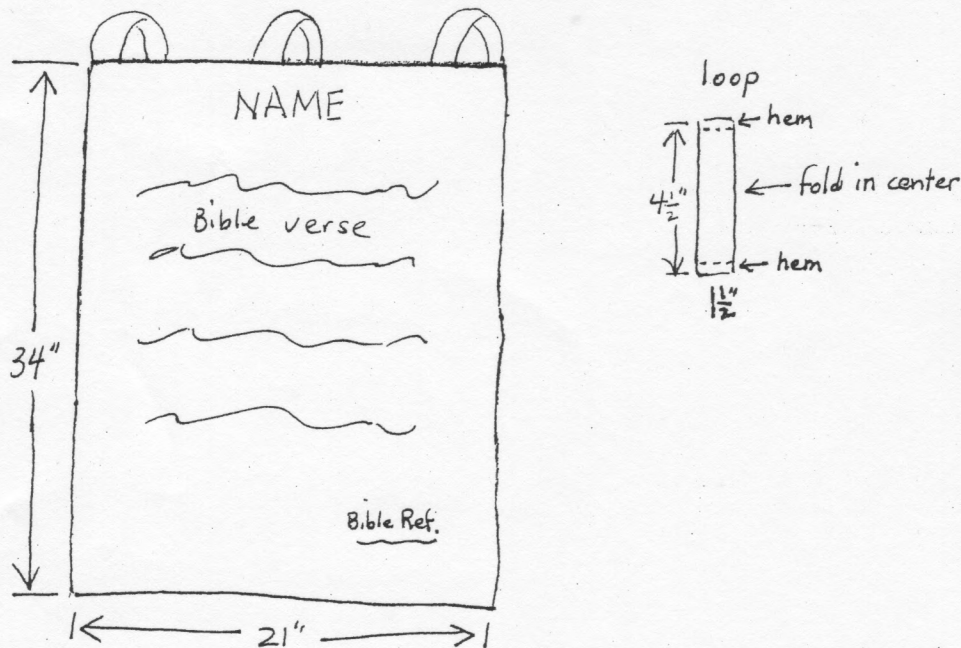 NAME
Bible verse
Bible Ref.
34"
21"
loop
hem
4½"
fold in center
hem
1½"